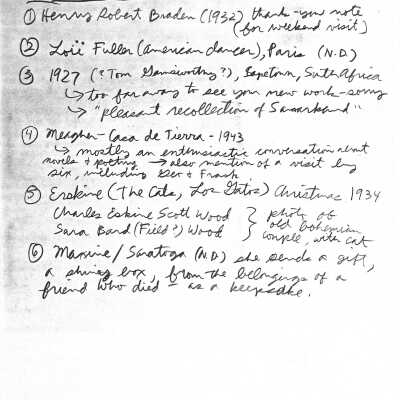 ① Henry Robert Braden (1932) thank-you note
(for weekend visit)
② Loïï Fuller (American dancer), Paris (N.D.)
③ 1927 (?Tom ?), Capetown, South Africa
↳ too far away to see your new work-sorry
↳ "pleasant recollection of Samarkand"
④ Meagher-Casa de Tierra-1943
↳ mostly an enthusiastic conversation about
novels & poetry → also mention of a visit by
six, including Geer & Frank.
⑤ Erskine (The Cats, Los Gatos) Christmas 1934
Charles Erskine Scott Wood
Sara Bard (Field?) Wood
} photo of
old bohemian
couple, with cat
⑥ Maxine/Saratoga (N.D.) she sends a gift,
a shiny box, from the belongings of a
friend who died - as a keepsake.